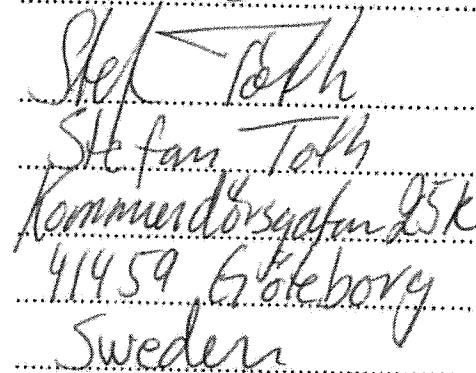 Stef Toth
Stefan Toth
Kommendörsgatan 25K
41459 Göteborg
Sweden